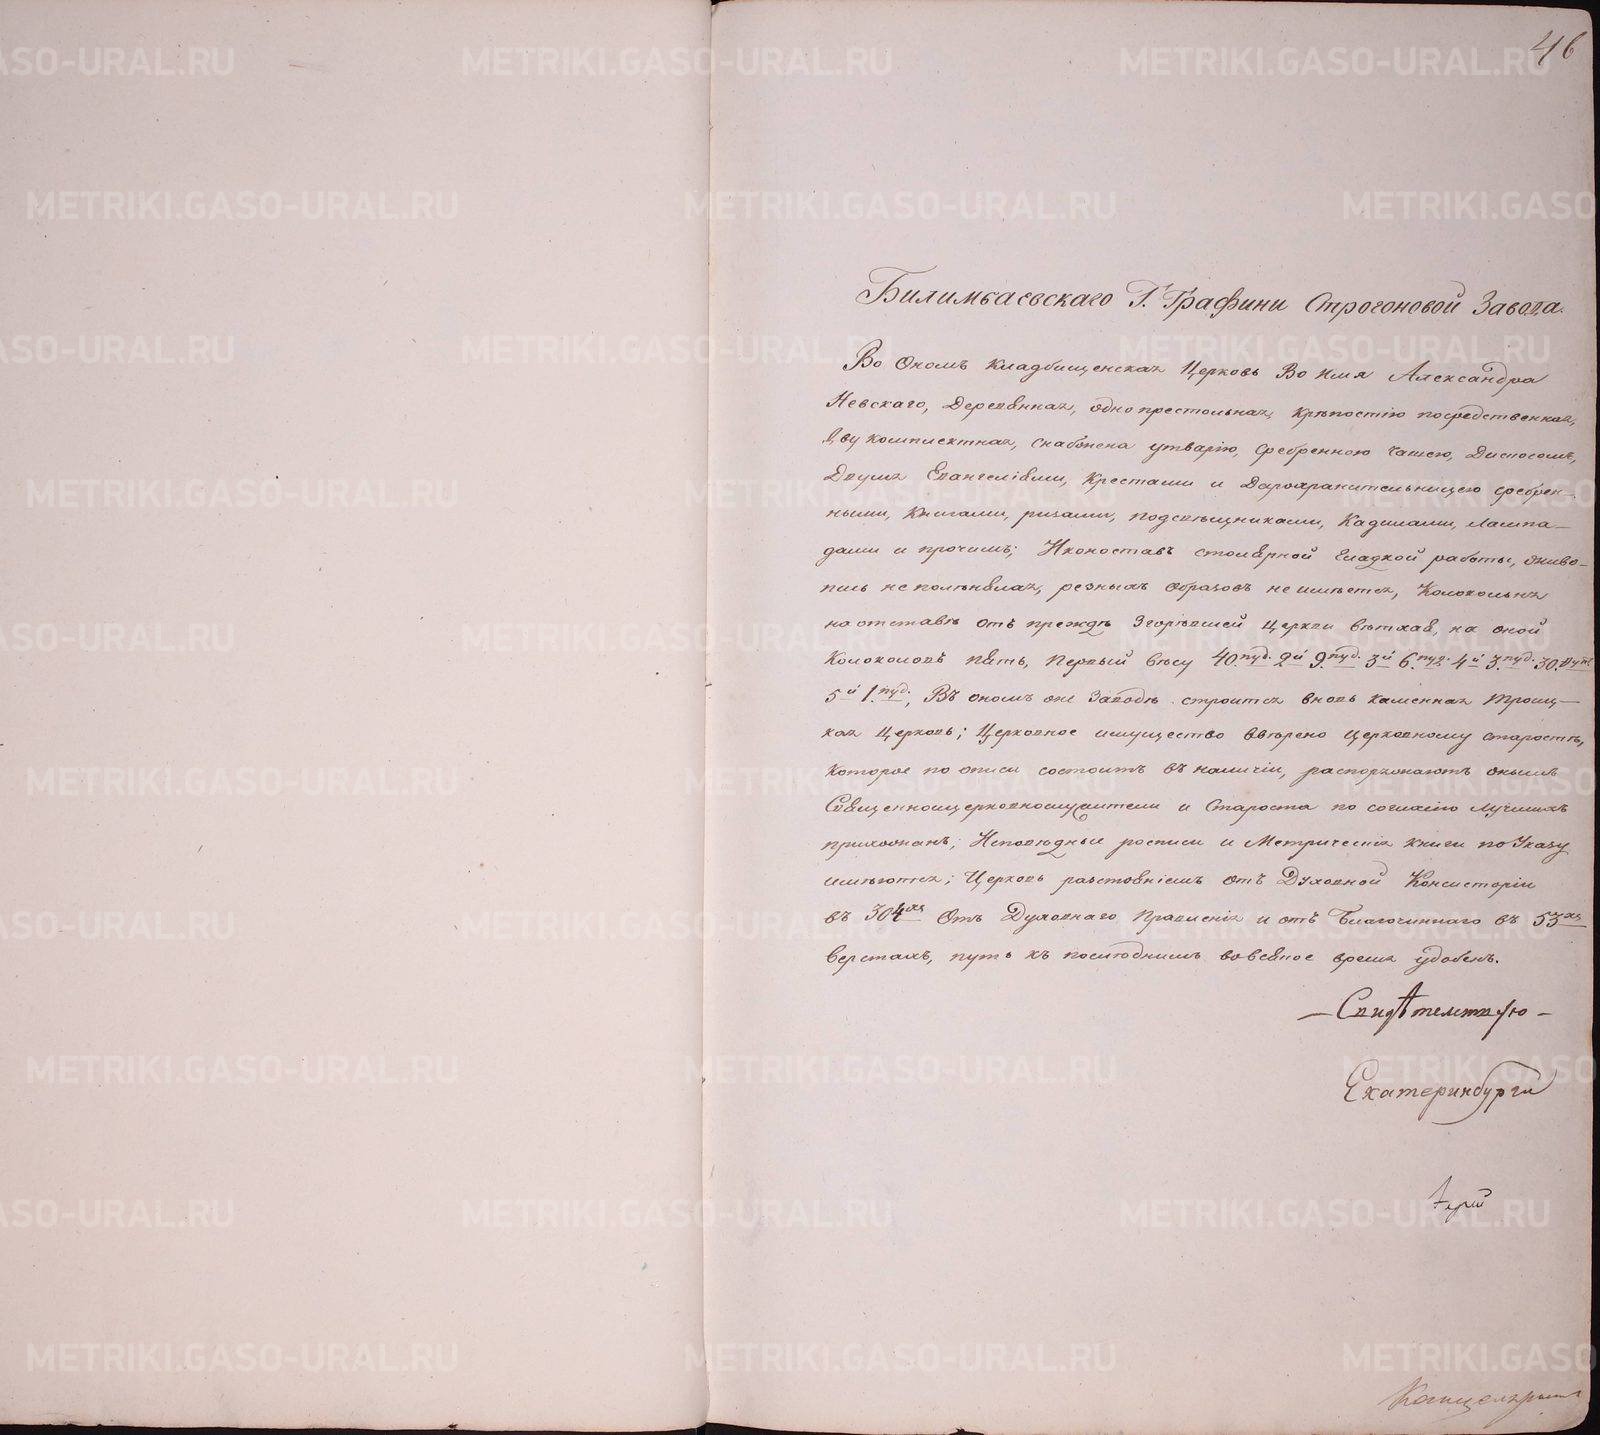 46
Билимбаевскаго Г. Графини Строгоновой Завода.
Во Ономъ Кладбищенская Церковь Во имя Александра
Невскаго, Деревянная, однопрестольная, крѣпостію посредственная,
Двукомплектная, снабжена утварію, сребренною Чашею, Дискосомъ,
Двумя Евангеліями, Крестами и Дарохранительницею сребрен-
ными, Книгами, ризами, подсвѣщниками, Кадилами, лампа-
дами и прочимъ; Иконостасъ столярной Гладкой работы, живо-
пись не полинялая, резныхъ Образовъ не имѣется, Колокольня
на отставѣ Отъ преждѣ Згорѣвшей Церкви вѣтхая, на оной
Колоколовъ пять, Первый вѣсу 40 пуд. 2й 9. пуд. 3й 6. пуд. 4й 3. пуд. 30. фунт.
5й 1. пуд., Въ ономъ же Заводѣ строится вновь каменная Троиц-
кая Церковь; Церковное имущество ввѣрено Церковному старостѣ,
Которое по описи состоитъ въ наличіи, распоряжаютъ онымъ
Священноцерковнослужители и Староста по согласію лучшихъ
прихожанъ; Исповѣдные росписи и Метрическія книги по Указу
имѣются; Церковь разстояніемъ Отъ Духовной Консисторіи
въ 304хъ Отъ Духовнаго Правленія и отъ Благочиннаго въ 53хъ
верстахъ, путь къ послѣднимъ вовсякое время удобенъ.
— Свидѣтелствую —
Екатеринбурги
METRIKI.GASO-URAL.RU